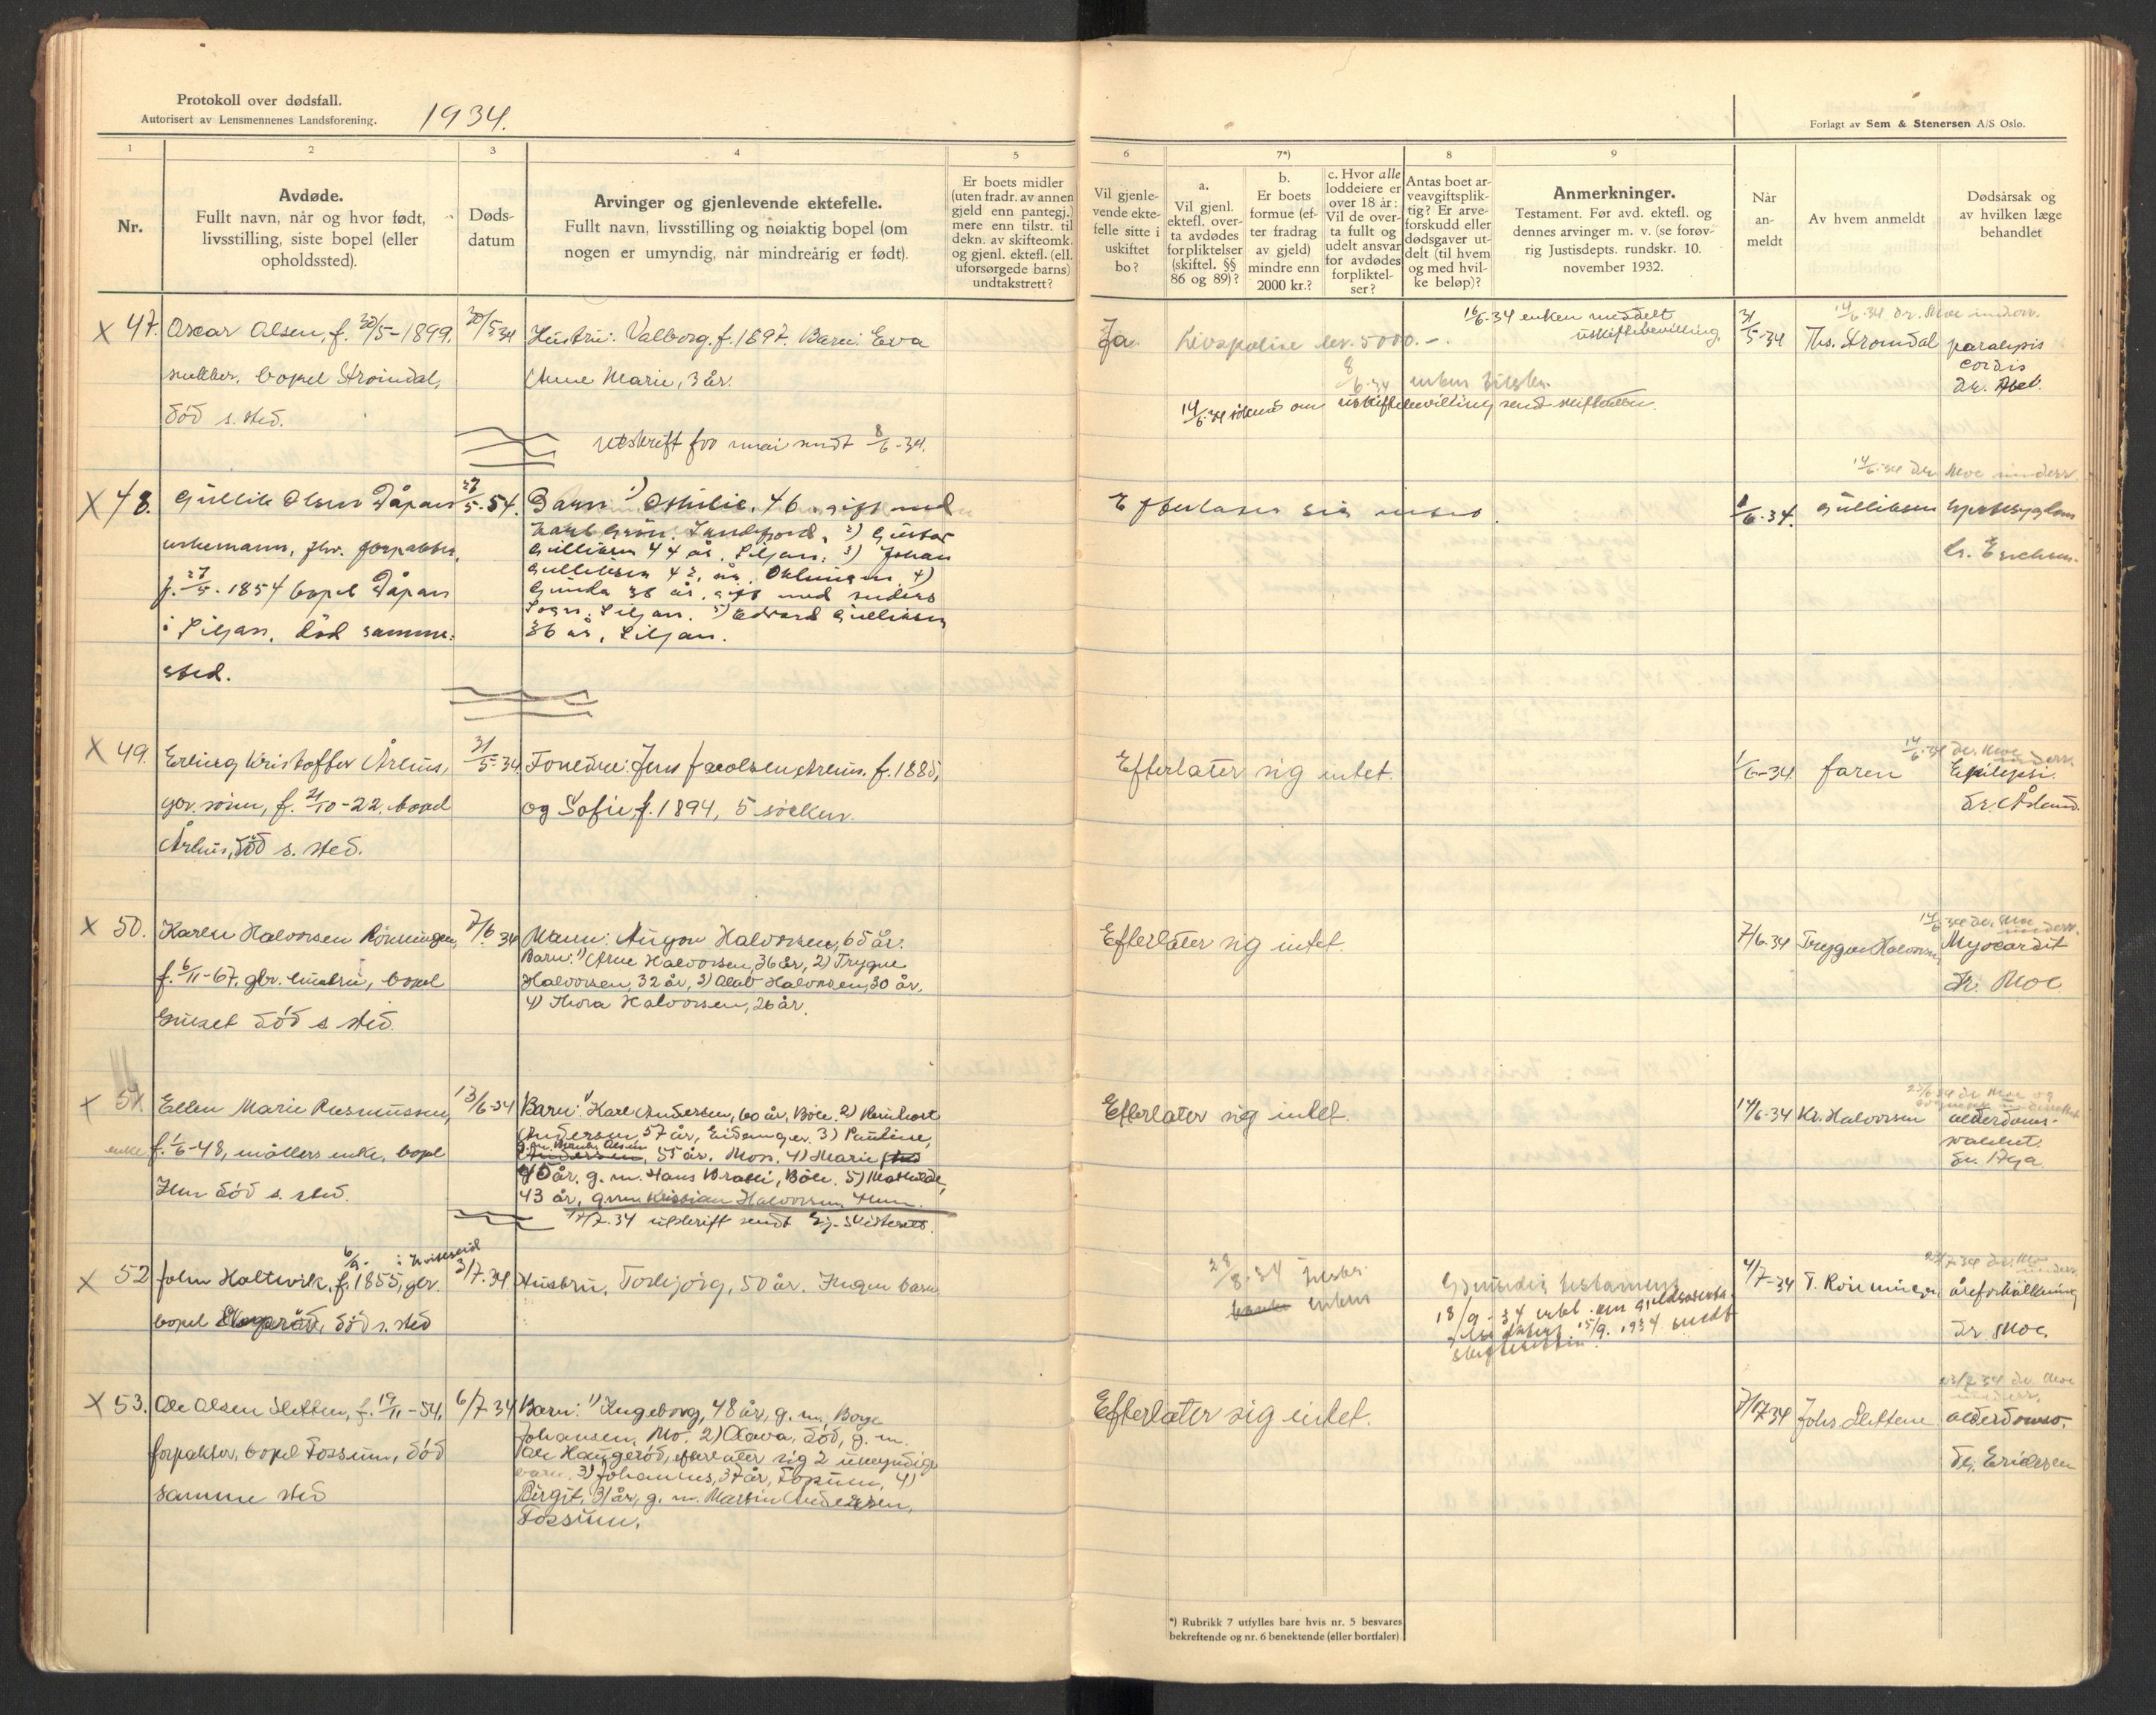 Protokoll over dødsfall.
Autorisert av Lensmennenes Landsforening.
1934.
1
2
3
4
5
Nr.
Avdøde.
Fullt navn, når og hvor født,
livsstilling, siste bopel (eller
opholdssted).
Døds-
datum
Arvinger og gjenlevende ektefelle.
Fullt navn, livsstilling og nøiaktig bopel (om
nogen er umyndig, når mindreårig er født).
Er boets midler
(uten fradr. av annen
gjeld enn pantegj.)
mere enn tilstr. til
dekn. av skifteomk.
og gjenl. ektefl. (ell.
uforsørgede barns)
undtakstrett?
X 47. Oscar Olsen, f. 30/5-1899, 30/5 34 Hustru: Valborg. f. 1897. Barn: Eva
bopel Strømdal, Anne Marie, 3 år.
død s. sted.
utskrift for mai sendt 8/6-34.
X 48. Gullik Olsen Dåpan 27/5-34. Barn 1) Othilie, 46, gift med
enkemann, fhv. forpakter, 2) Gustav
Gulliksen 44 år, Siljan. 3) Johan
f. 27/5-1854 bopel Dåpan Gulliksen 42 år, 4)
Gunda 38 år, gift med Anders
i Siljan, død samme- Siljan. 5) Edvard Gulliksen
36 år, Siljan.
sted.
X 49. Erling Kristoffer Århus, 31/5-34. Foreldre: Jens Jacobsen Århus. f. 1885,
gbr. sønn, f. 21/10-22. bopel og Sofie, f. 1894, 5 søsken.
Århus, død s. sted.
X 50. Karen Halvorsen Rønningen, 7/6-34 Mann: Halvorsen, 65 år.
Barn: 1) Arne Halvorsen, 36 år, 2) Trygve
f. 6/11-67. gbr. hustru, bopel Halvorsen, 32 år, 3) Olav Halvorsen, 30 år,
4) Thora Halvorsen, 26 år.
død s sted.
X 51. Ellen Marie Rasmussen, 13/6-34 Barn: 1) Karl Andersen, 60 år, Bøle. 2) Reinhart
Andersen, 57 år, Eidanger. 3) Pauline,
enke f. 1/6-48, møllers enke, bopel Andersen, 55 år. Moss. 4) Marie
45 år. g. m. Hans Bøle. 5) Mathilde,
død s. sted. 43 år, g. m. Kristian Halvorsen,
17/7-34 utskrift sendt
X 52 John Holtvik, f. 6/9. 1855, gbr. i Kviteseid 3/7-34 Hustru, Torbjørg, 50 år. Ingen barn
bopel død s. sted
X 53. Ole Olsen Sletten, f. 19/11-54, 6/7-34 Barn: 1) Ingeborg, 48 år, g. m. Borge
Johansen, Mo. 2) Olava, død, g. m.
forpakter, bopel Fossum, død Ole Haugerød, efterlater sig 2 umyndige
barn. 3) Johannes, 37 år, Fossum, 4)
samme sted Birgit, 31 år, g. m. Martin Andersen,
Fossum.
Forlagt av Sem & Stenersen A/S Oslo.
6
7*)
8
9
Vil gjenle-
vende ekte-
felle sitte i
uskiftet
bo?
a.
Vil gjenl.
ektefl. over-
ta avdødes
forpliktelser
(skiftel. §§
86 og 89)?
b.
Er boets
formue (ef-
ter fradrag
av gjeld)
mindre enn
2000 kr.?
c. Hvor alle
loddeiere er
over 18 år:
Vil de over-
ta fullt og
udelt ansvar
for avdødes
forpliktel-
ser?
Antas boet ar-
veavgiftsplik-
tig? Er arve-
forskudd eller
dødsgaver ut-
delt (til hvem
og med hvil-
ke beløp)?
Anmerkninger.
Testament. Før avd. ektefl. og
dennes arvinger m. v. (se forøv-
rig Justisdepts. rundskr. 10.
november 1932.
Når
an-
meldt
Av hvem anmeldt
Dødsårsak og
av hvilken læge
behandlet
16/6-34 enken meddelt 14/6-34 dr. Moe underr.
uskiftebevilling.
Ja. Livspolise kr. 5000.-. 31/5-34 Ths. Strømdal paralysis
cordis
8/6-34 enken tilskr. dr. Abel.
14/6-34 om uskiftebevilling sendt skifteretten.
14/6-34 Dr. Moe underr.
Efterlater sig intet. 1/6-34. Gulliksen
dr. Erichsen.
14/6-34 dr. Moe underr.
Efterlater sig intet. 1/6-34 faren Epilepsi.
dr. Åsland.
14/6-34 dr. Moe underr.
Efterlater sig intet. 7/6-34 Trygve Halvorsen Myocardit
Dr. Moe
25/6-34 dr. Moe og
Efterlater sig intet. 14/6-34 Kr. Halvorsen alderdoms-
svakhet.
28/8-34 tilskr. enken Gjensidig testament 4/7-34 T. Rønningen åreforkalkning
18/9-34 15/9. 1934 sendt
skifteretten. dr. Moe.
23/7 34 dr. Moe underr.
Efterlater sig intet. 7/7 34 Johs Sletten alderdoms-
dr. Ericksen
*) Rubrikk 7 utfylles bare hvis nr. 5 besvares
bekreftende og nr. 6 benektende (eller bortfaler)